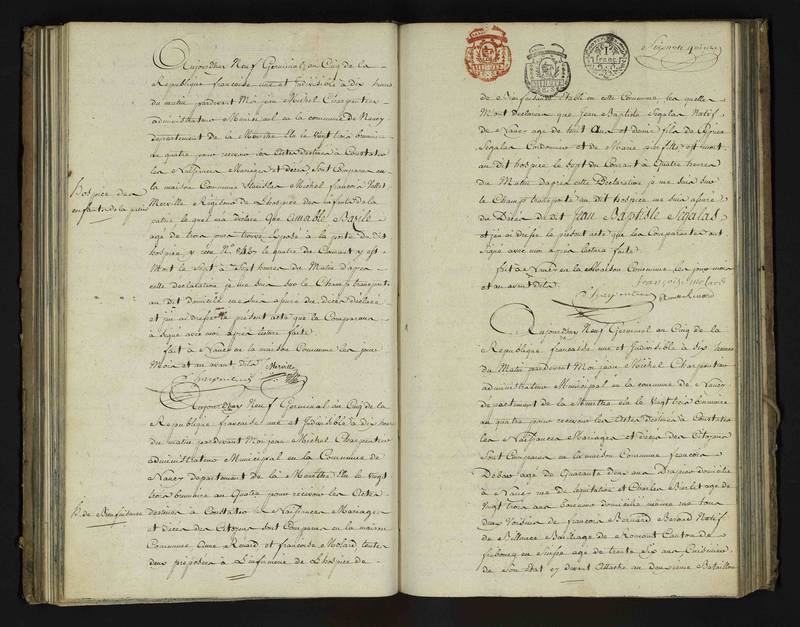 Aujourdhuy Neuf Germinal, an Cinq de la
Republique francaise une et Indivisible à dix heures
du matin pardevant Moi jean Michel Charpentier
administrateur Municipal en la commune de Nancy
departement de la Meurthe Elu le Vingt trois brumaire
an quatre pour recevoir les Actes destinés à Constater
les Naissances Mariages et décès, sont Comparus en
la maison Commune Stanislas Michel francois
Merville Regisseur de Lhospice des enfants de la
patrie le quel ma déclaré que Aimable Bazile
agé de trois jours trouvé Exposé à la porte du dit
hospice le quatre du Courant y est
Mort le Sept à Sept heures du Matin d'après
cette déclaration je me suis sur le Champ transporté
au dit domicile me suis assuré du décès déclaré
et j'ai dressé le présent acte que le Comparant
a signé avec moi après lecture faite
fait à Nancy en la maison Commune les jours
Mois et an avant dits Merville
Charpentier
hospice des
enfants de la patrie
Aujourdhuy Neuf Germinal an Cinq de la
Republique francoise une et Indivisible à dix heures
du matin pardevant Moi jean Michel Charpentier
administrateur Municipal en la Commune de
Nancy departement de la Meurthe Elu le Vingt
trois brumaire an Quatre pour recevoir les Actes
destinés à Constater les Naissances Mariages
et décès des Citoyens sont Comparus en la maison
Commune Anne Renard et francoise Molard toutes
deux préposées à Linfirmerie de Lhospice de
h. de Bienfaisance
Soixante quinze
de Bienfaisance Etabli en cette Commune, les quelles
Mont déclaré que Jean Baptiste Segalas Natif
de Nancy agé de huit Ans et demi fils de
Segalas Cordonnier et de Marie est mort
au dit hospice le Sept du Courant à Quatre heures
du Matin d'après cette Déclaration je me suis sur
le Champ transporté au dit hospice me suis assuré
du Décès du dit Jean Baptiste Segalas
et j'ai dressé le présent acte que les Comparantes ont
signé avec moi après lecture faite
fait à Nancy en la Maison Commune les jours mois
et an avant dits françoise molard
Charpentier Anne Renard
Aujourdhuy Neuf Germinal an Cinq de la
Republique francaise une et Indivisible à dix heures
du Matin pardevant Moi jean Michel Charpentier
administrateur Municipal en la commune de Nancy
departement de la Meurthe élu le Vingt trois brumaire
an quatre pour recevoir les Actes destinés à Constater
les Naissances Mariages et décès des Citoyens
sont Comparus en la maison Commune francois
Debar agé de Quarante deux ans Drapier domicilié
à Nancy rue de legalitaire et Charles Barlet age de
Vingt trois ans domicilié même rue tous
deux Voisins de francois Bernard Natif
de Billance Bailliage de Romont Canton de
fribourg en Suisse agé de trente six ans Cuisinier
de Son Etat et devant Attaché au deuxième Bataillon